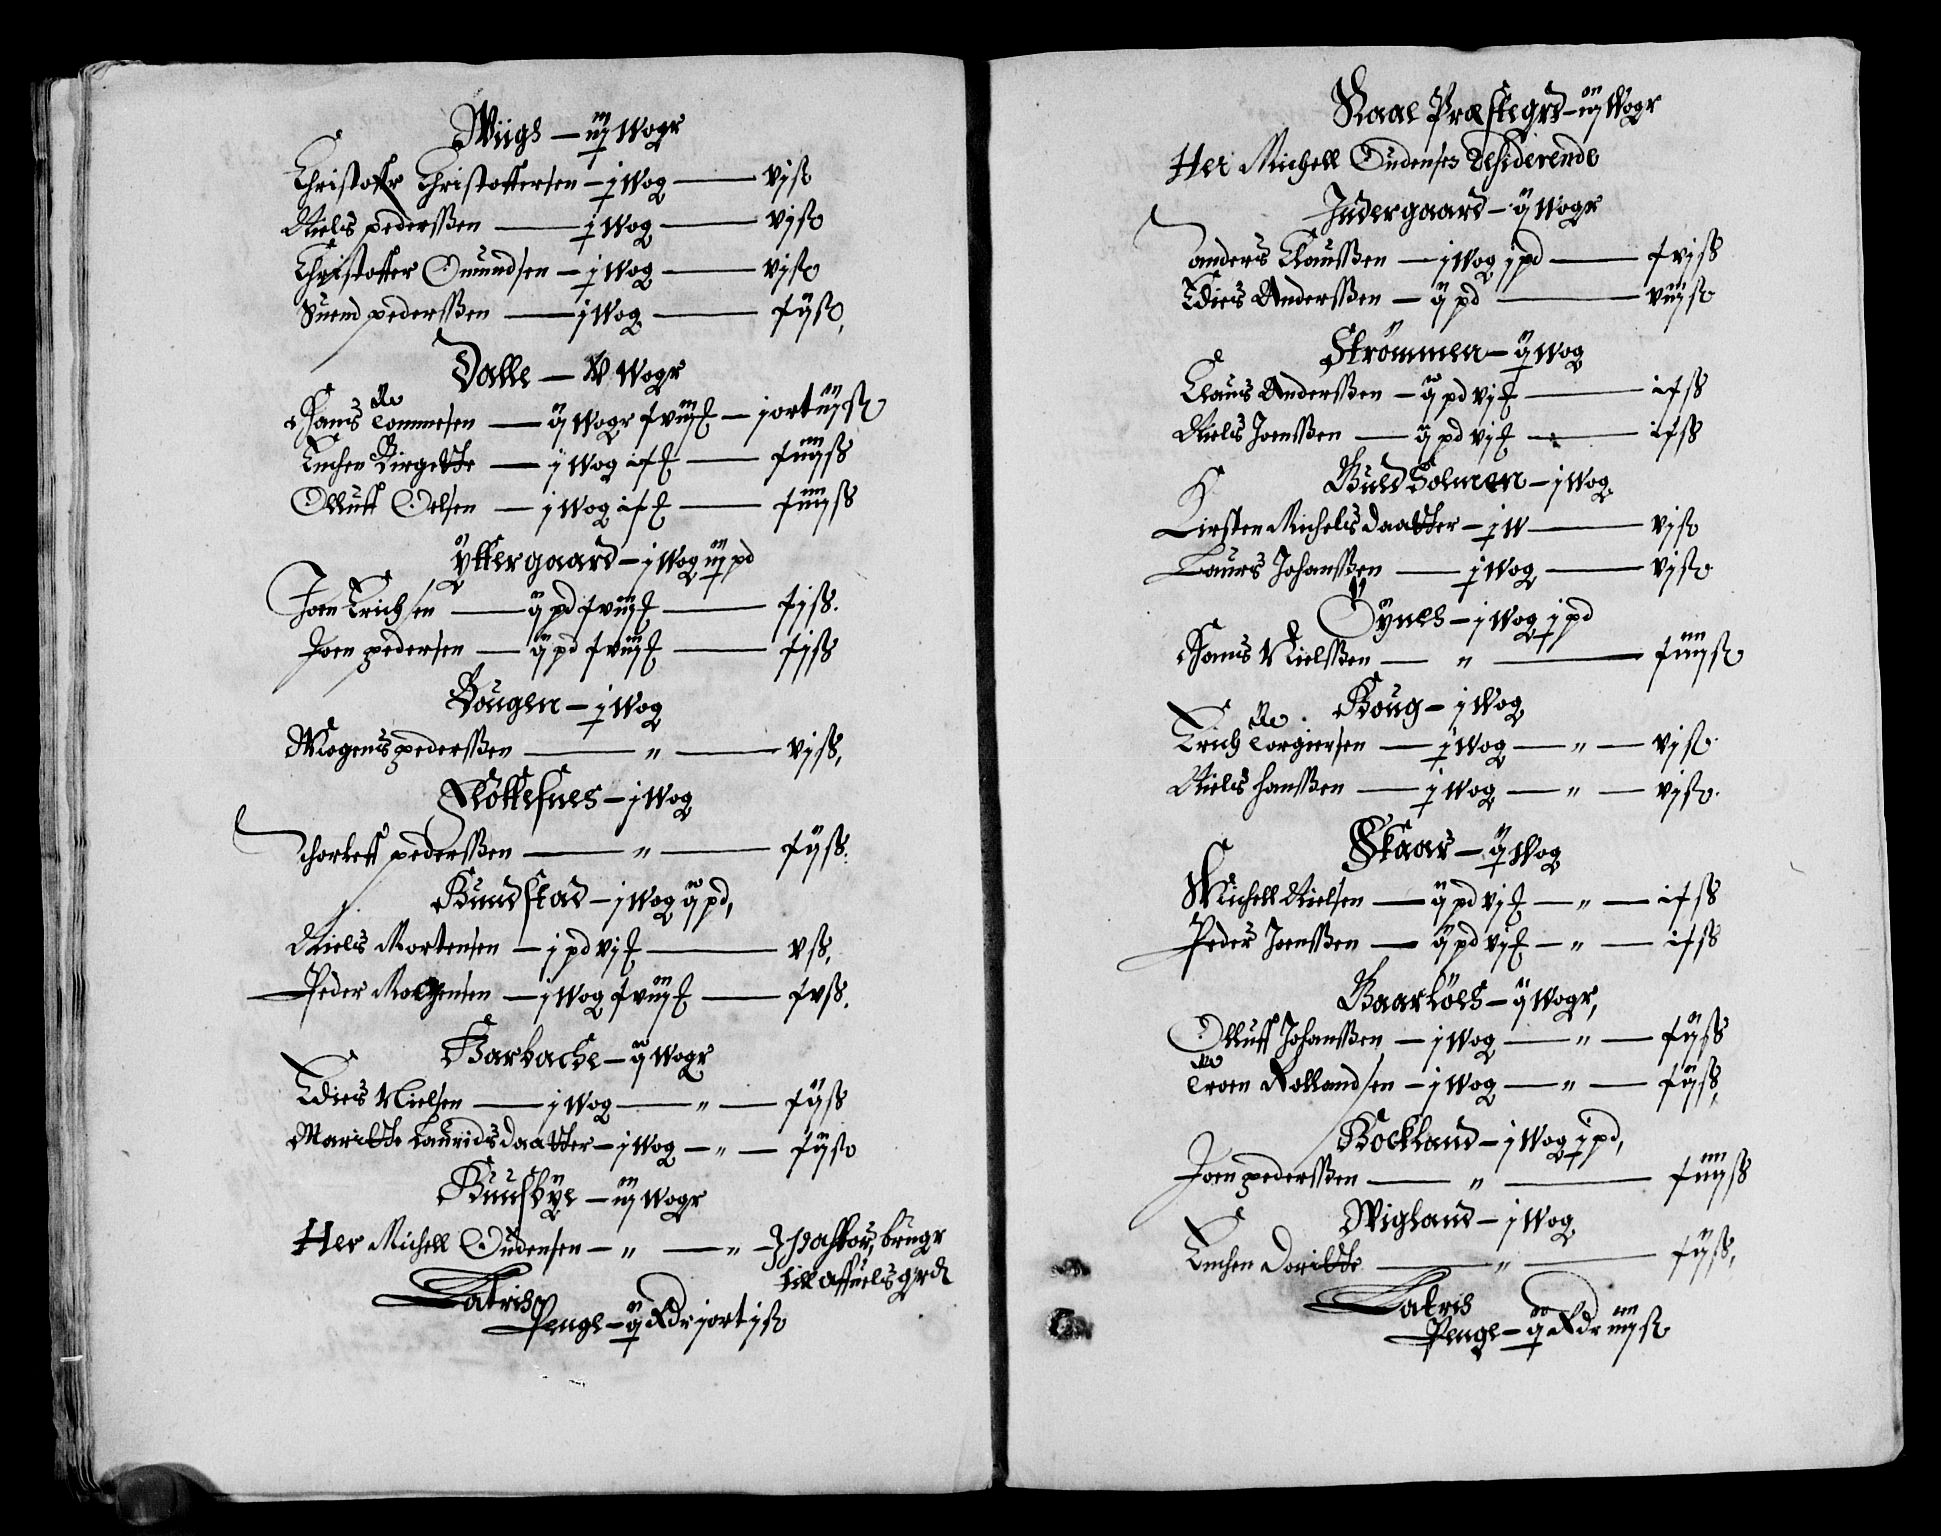 Wiigh — iij Wogr
Christoffer Christoffersen — j Wog — vj ß
Niels pederßen — j Wog — vj ß
Christoffer Omundsen — j Wog — vj ß
Suend pederßen — j Wog — xij ß
Dalle — V Wogr
Hans Tommesen — ij Wogr xviij £ — j ort iij ß
Enchen Birgette — j Wog ix £ — xiiij ß
Olluff Oelsen — j Wog ix £ — xiiij ß
Yttergaard — j Wog iij pd
Joen Erichsen — ij pd xviij £ — xj ß
Joen pedersen — ij pd xviij £ — xj ß
Hougen — j Wog
Mogens pederßen — " — vj ß
Slottesnes — j Wog
Thorleff pederßen — " — xij ß
Bundstad — j Wog ij pd
Niels Mortensen — j pd vj £ — v ß
Peder — j Wog xviij £ — xv ß
Barbache — ij Wogr
Edies Nielsen — j Wog — " — xij ß
Maritte Lauridsdaatter — j Wog — " — xij ß
Huusbye — iij Wogr
Her Michell Oudensen — " — " — pastor, brugr
till affuelsgrd
Latris
Penge — ij Rdr j ort j ß
Raae Præstegrd — iij Wogr
Her Michell Oudensen Residerende
Indergaard — ij Wogr
anders Claußen — j Wog j pd — xvj ß
Edies Anderßen — ij pd — viij ß
Strömmen — ij Wog
Claus Anderßen — ij pd vj £ — ix ß
Niels Joenßen — ij pd vj £ — ix ß
Guldholmen — j Wog
Kirsten Michelsdaatter — j W — vj ß
Laurs Johanßen — j Wog — vj ß
Öÿnes — j Wog j pd
Hans Nielßen — " — xiiij ß
Houg — j Wog
Erich Torgiersen — j Wog — " — vj ß
Niels Hanßen — j Wog — " — vj ß
Skaar — ij Wog
Michell Nielsen — ij pd vj £ — " — ix ß
Peder Joenßen — ij pd vj £ — " — ix ß
Baarlöes — ij Wogr
Olluff Johanßen — j Wog — " — xij ß
Troen Rollandsen — j Wog — " — xij ß
Hockland — j Wog j pd
Joen pederßen — " — xiiij ß
Wigland — j Wog
Enchen Doritte — " — xij ß
Latris
Penge — ij Rdr iiij ß